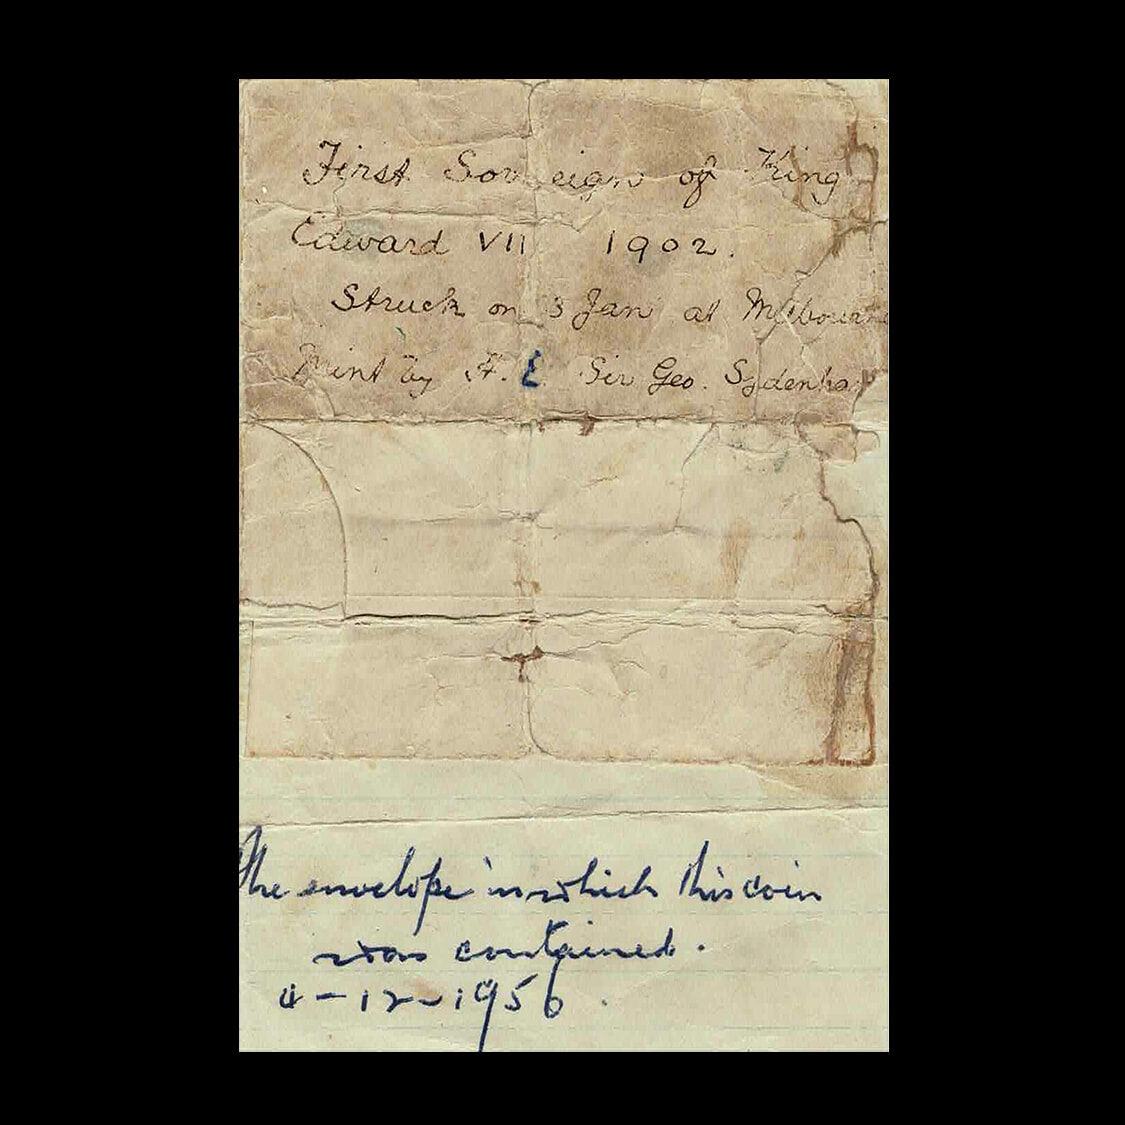 First Sovereign of King
Edward VII 1902.
Struck on 3 Jan at Melbourne
Mint by H. E Sir Geo. Sydenha
The envelope in which this coin
was contained.
4-12-1956.